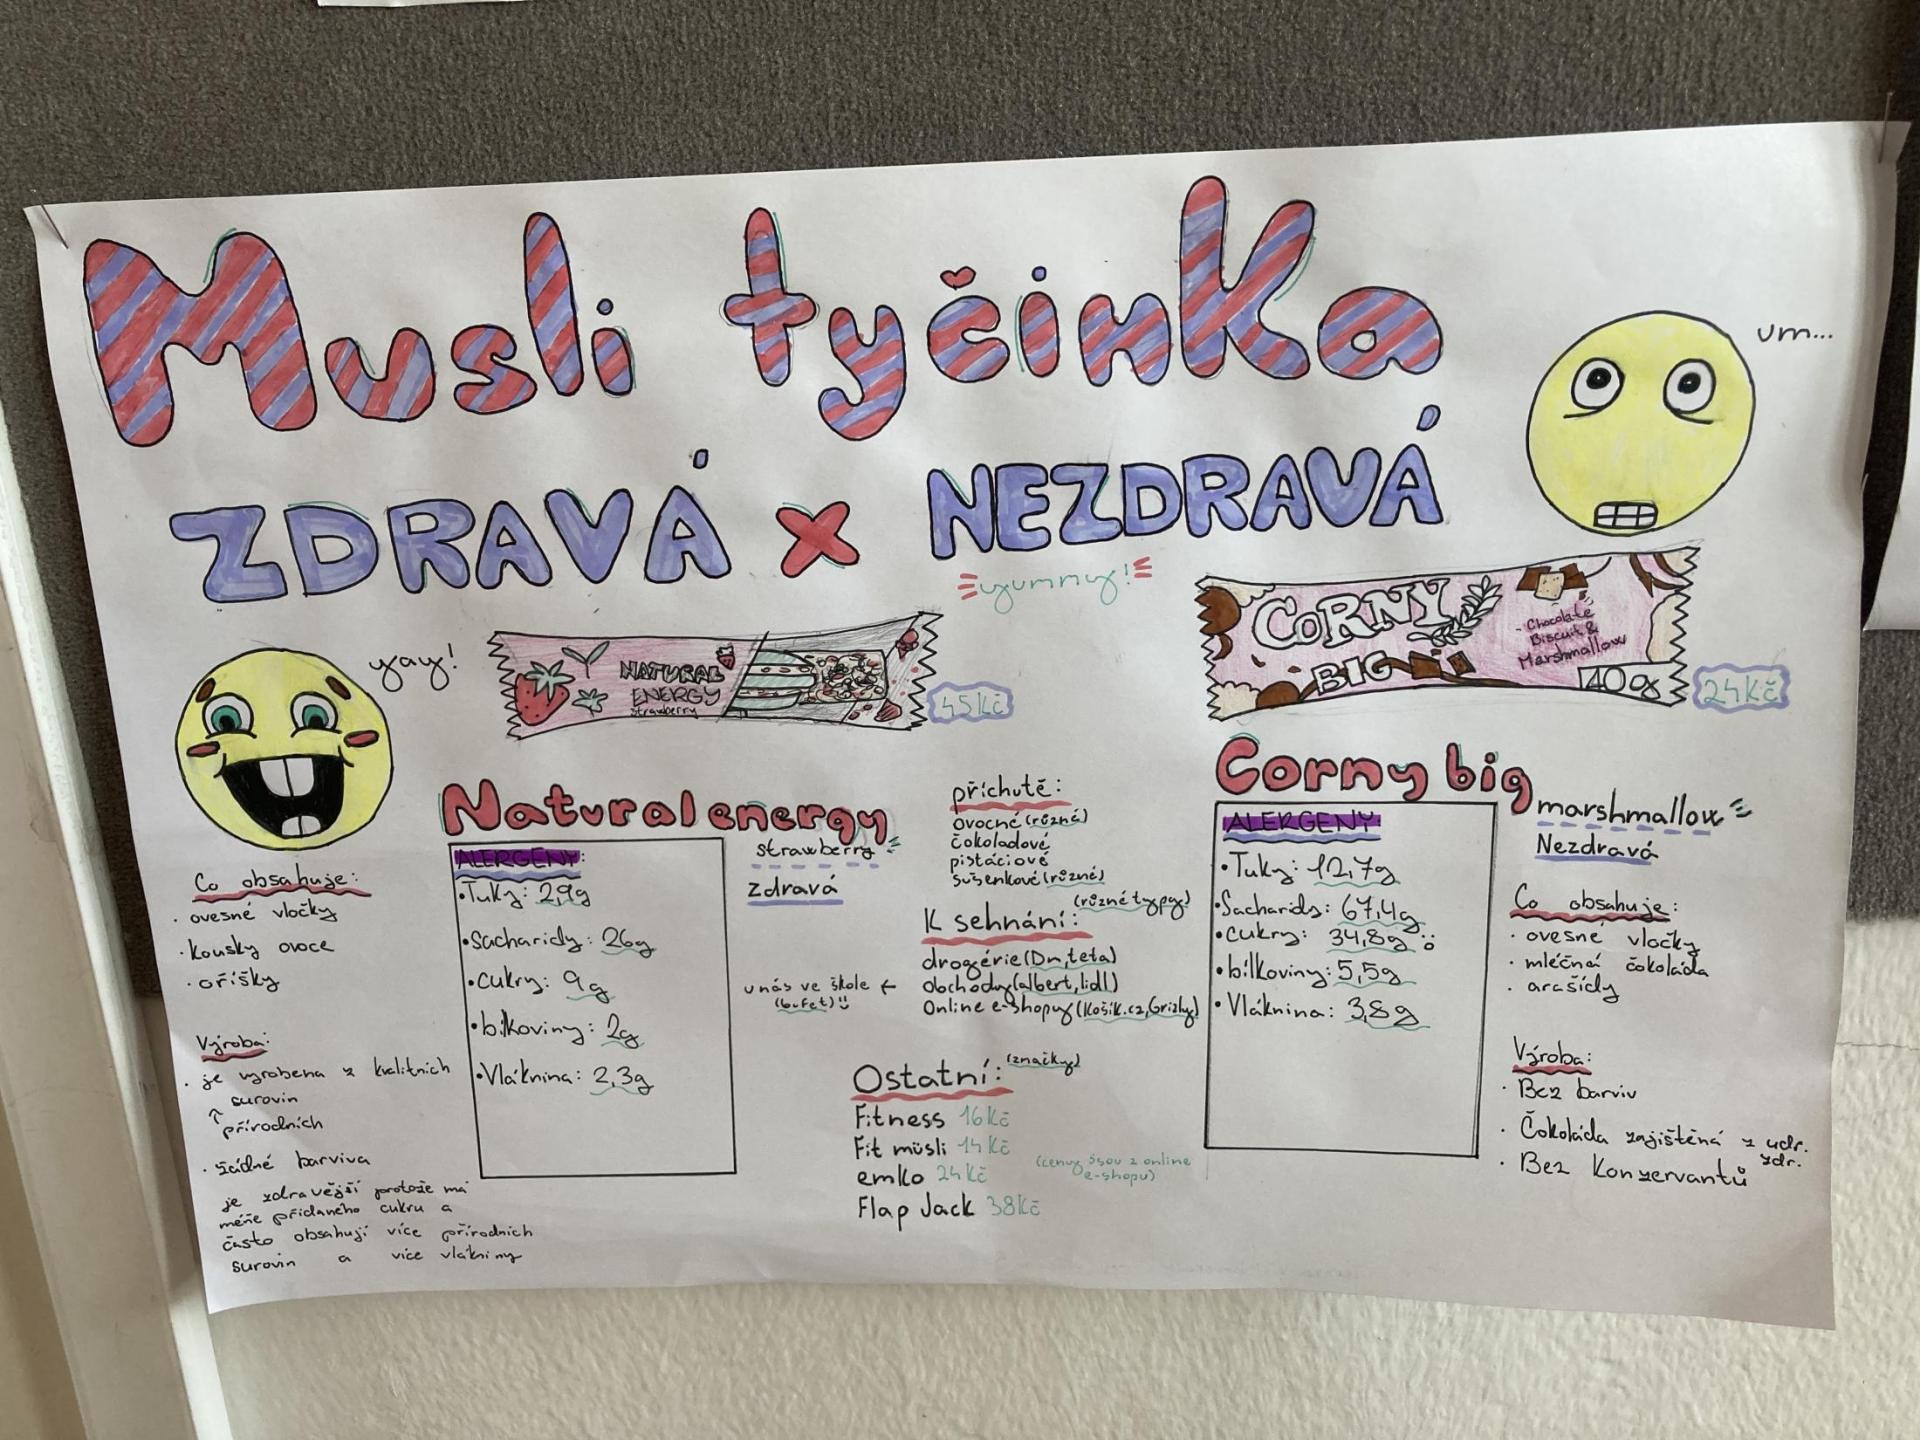 Musli tyčinka
ZDRAVÁ x NEZDRAVÁ
um...
yummy!
yay!
NATURAL
ENERGY
strawberry
45Kč
CORNY
BIG
Chocolate
Biscuit &
Marshmallow
40g
24Kč
Natural energy
strawberry
zdravá
ALERGENY:
•Tuky: 2,9g
•Sacharidy: 26g
•cukry: 9g
•bílkoviny: 2g
•Vláknina: 2,3g
Co obsahuje:
· ovesné vločky
· kousky ovoce
· oříšky
Výroba:
· je vyrobena z kvalitních
surovin
↑ přírodních
· žádné barviva
je zdravější protože má
méně přidaného cukru a
často obsahují více přírodních
surovin a více vlákniny
příchutě:
ovocné (různé)
čokoladové
pistáciové
sušenkové (různé)
(různé typy)
K sehnání:
drogérie (Dm, teta)
obchody (albert, lidl)
Online e-shopy (Košík.cz, Grizly)
u nás ve škole ←
(bufet)!!
Ostatní: (značky)
Fitness 16Kč
Fit müsli 14Kč
emko 24Kč
Flap Jack 38Kč
(ceny jsou z online
e-shopu)
Corny big
marshmallow
Nezdravá
ALERGENY
•Tuky: 12,7g
•Sacharidy: 67,4g
•cukry: 34,8g
•bílkoviny: 5,5g
•Vláknina: 3,8g
Co obsahuje:
· ovesné vločky
· mléčná čokoláda
· arašídy
Výroba:
· Bez barviv
· Čokoláda zajištěná z udr.
zdr.
· Bez Konzervantů